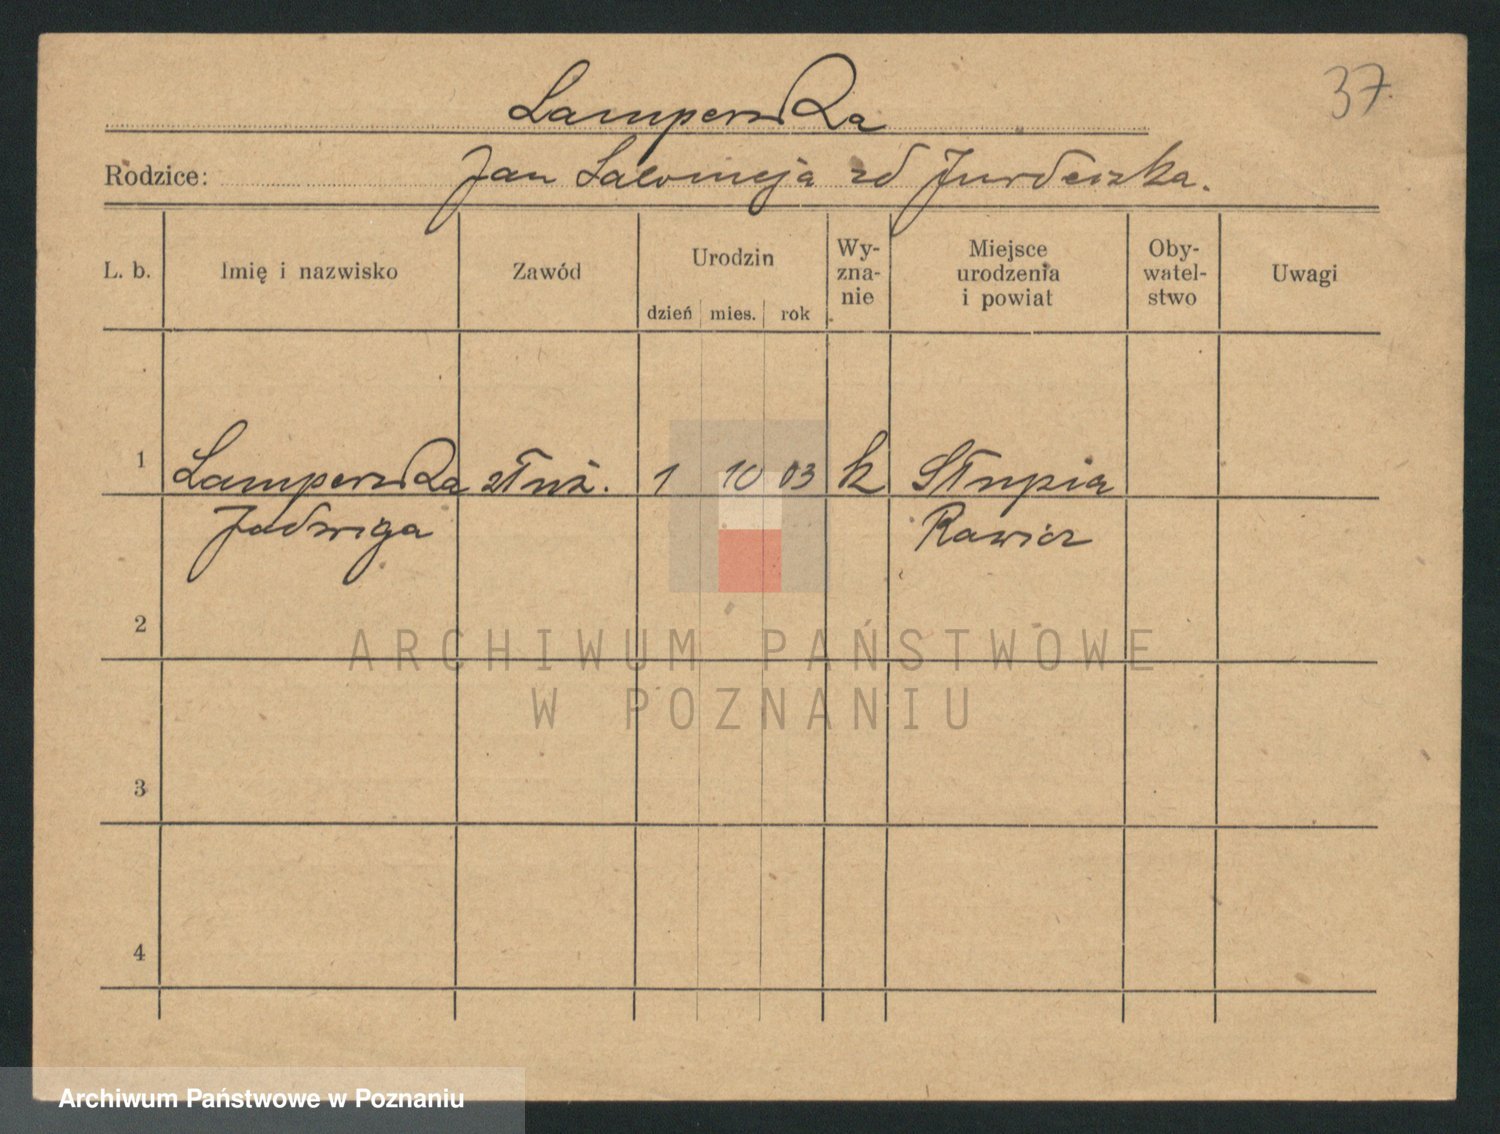 37
Lamperska
Rodzice: Jan Salomeja zd Jurdeczka.
L. b. Imię i nazwisko Zawód Urodzin dzień mies. rok Wy-zna-nie Miejsce urodzenia i powiat Oby-watel-stwo Uwagi
1 Lamperska służ. 1 10 03 k Słupia
Jadwiga Rawicz
2
ARCHIWUM PAŃSTWOWE
W POZNANIU
3
4
Archiwum Państwowe w Poznaniu